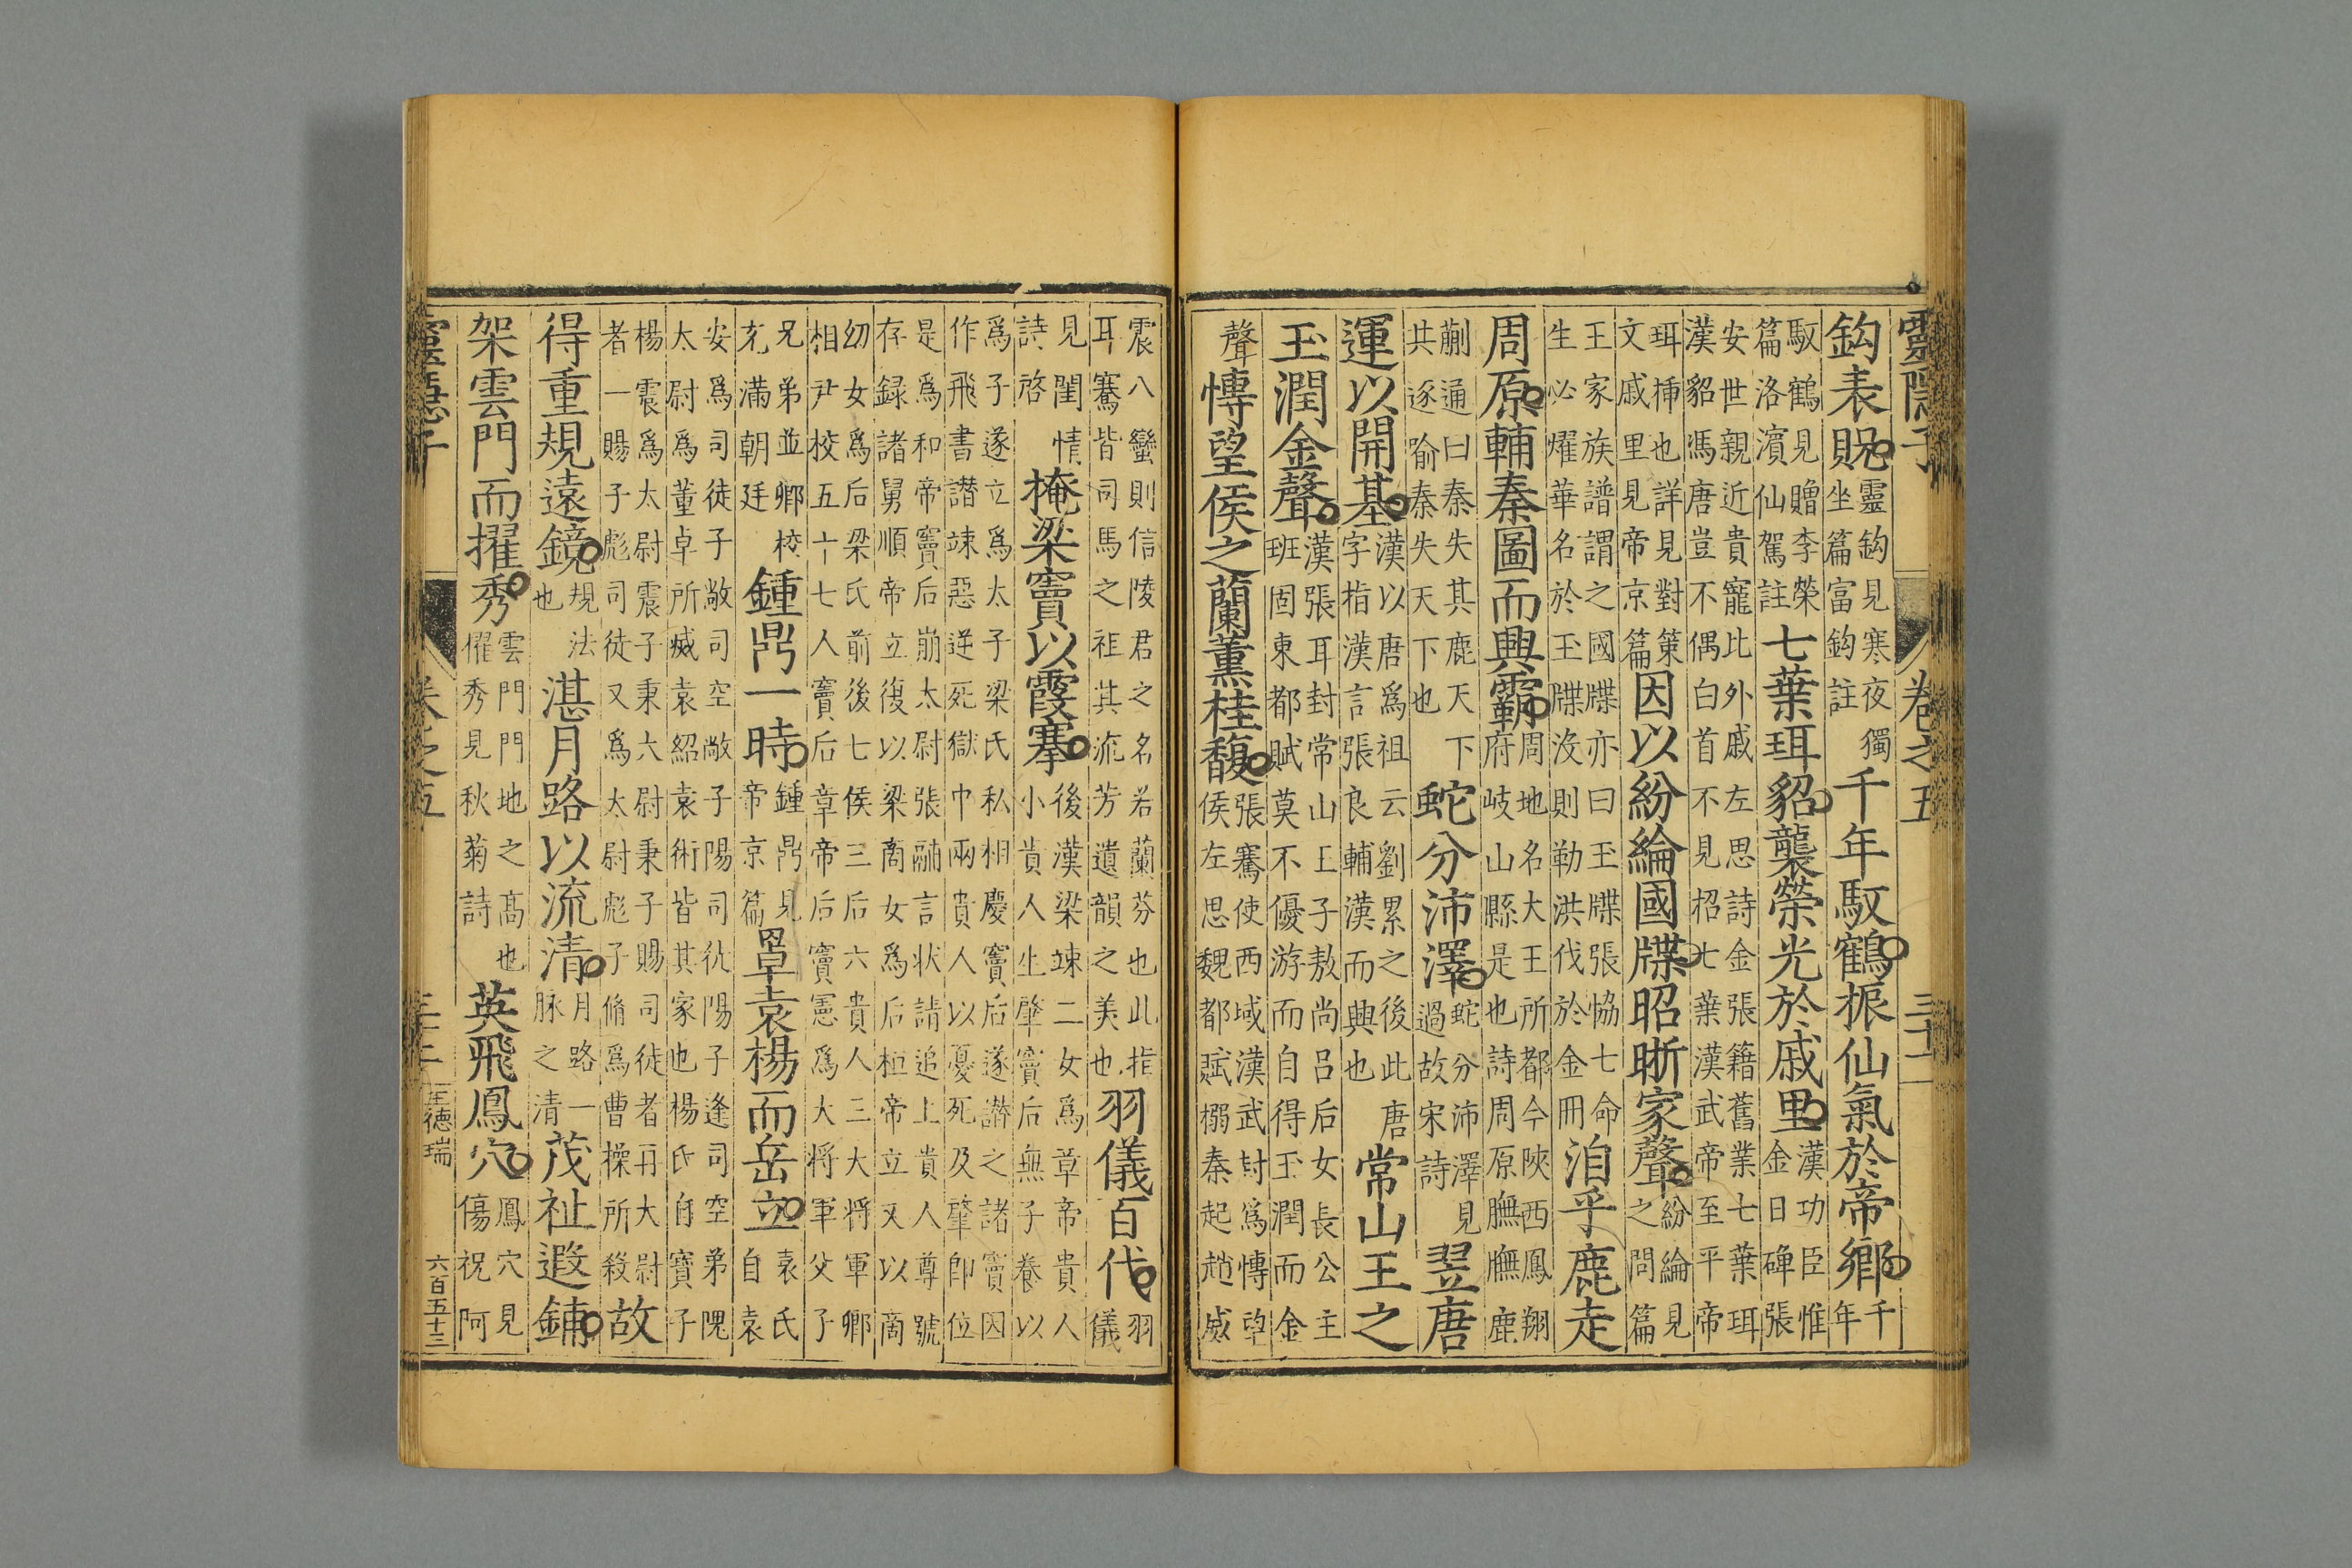 靈隱子 卷之五 三十一
鈎表貺靈鈎見寒夜獨坐篇富鈎註千年馭鶴振仙氣於帝鄉千年
馭鶴見贈李榮篇洛濱仙駕註七葉珥貂襲榮光於戚里漢功臣惟金日磾張
安世親近貴寵比外戚左思詩金張籍舊業七葉珥漢貂馮唐豈不偶白首不見招七葉漢武帝至平帝
珥挿也詳見對策文戚里見帝京篇因以紛綸國牒昭晣家聲紛綸見之問篇
王家族譜謂之國牒亦曰玉牒張協七命生必燿華名於玉牒沒則勒洪伐於金冊洎乎鹿走
周原輔秦圖而興霸周地名大王所都今陜西鳳翔府岐山縣是也詩周原膴膴鹿
蒯通曰秦失其鹿天下共逐喻秦失天下也蛇分沛澤蛇分沛澤見過故宋詩翌唐
運以開基漢以唐爲祖云劉累之後此唐字指漢言張良輔漢而興也常山王之
玉潤金聲漢張耳封常山王子敖尚呂后女長公主班固東都賦莫不優游而自得玉潤而金
聲慱望侯之蘭薰桂馥張騫使西域漢武封爲慱望侯左思魏都賦搦秦起趙威
震八蠻則信陵君之名若蘭芬也此指耳騫皆司馬之祖其流芳遺韻之美也羽儀百代羽儀
見閨情詩啓掩梁竇以霞搴後漢梁竦二女爲章帝貴人小貴人生肇竇后無子養以
爲子遂立爲太子梁氏私相慶竇后遂譖之諸竇因作飛書譖竦惡逆死獄中兩貴人以憂死及肇即位
是爲和帝竇后崩太尉張酺言状請追上貴人尊號存録諸舅順帝立復以梁商女爲后桓帝立又以商
幼女爲后梁氏前後七侯三后六貴人三大将軍卿相尹校五十七人竇后章帝后竇憲爲大将軍父子
兄弟並卿校充滿朝廷鍾鼎一時鍾鼎見帝京篇罩袁楊而岳立袁氏自袁
安爲司徒子敞司空敞子陽司徒陽子逢司空弟隗太尉爲董卓所滅袁紹袁術皆其家也楊氏自寶子
楊震爲太尉震子秉六尉秉子賜司徒者再大尉者一賜子彪司徒又爲太尉彪子脩爲曹操所殺故
得重規遠鏡規法也湛月路以流清月路一脉之清茂祉遐鋪
架雲門而擢秀雲門門地之髙也擢秀見秋菊詩英飛鳳穴鳳穴見傷祝阿
靈隱子 卷之五 三十二 王德瑞 六百五十三